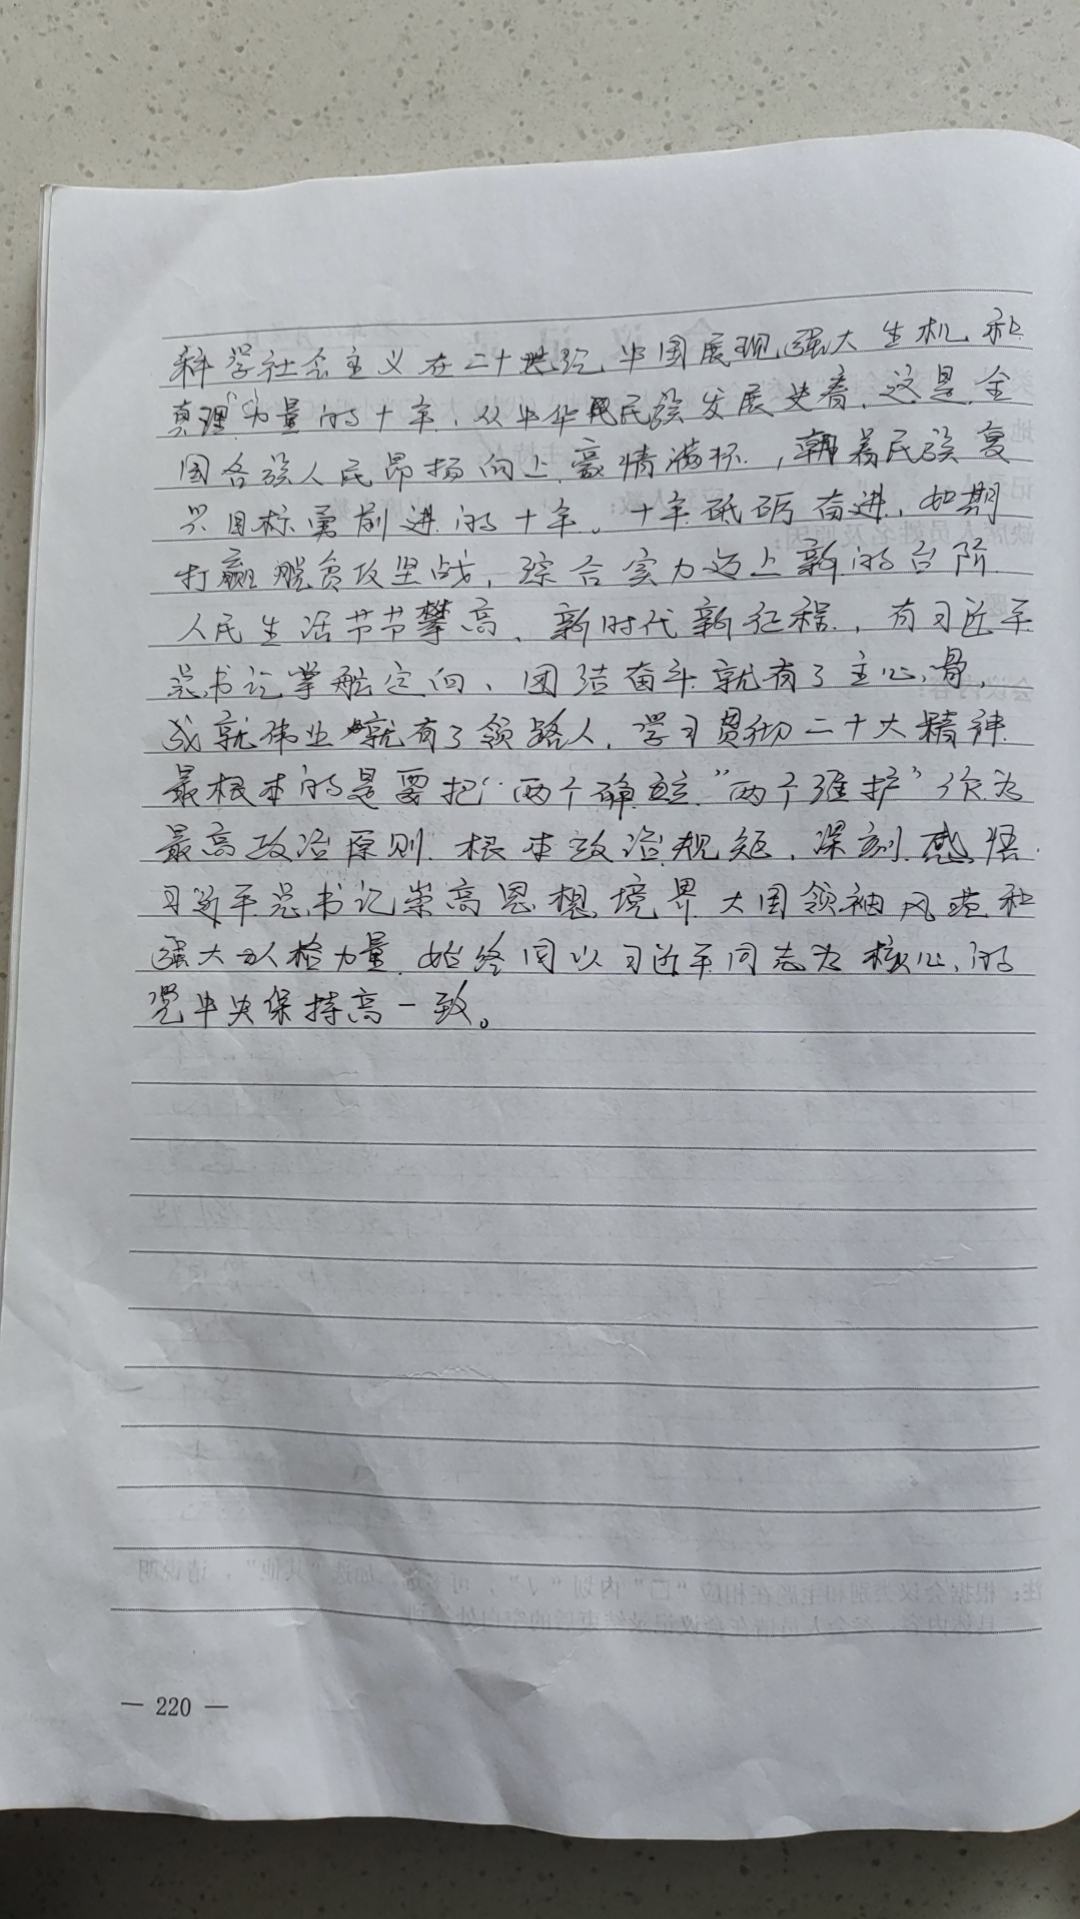 科学社会主义在二十世纪中国展现强大生机和
真理力量的十年，从中华民族发展史看，这是全
国各族人民昂扬向上、豪情满怀，朝着民族复
兴目标勇前进的十年。十年砥砺奋进，如期
打赢脱贫攻坚战，综合实力迈上新的台阶
人民生活节节攀高、新时代新征程，有习近平
总书记掌舵定向、团结奋斗就有了主心骨，
成就伟业就有了领路人，学习贯彻二十大精神
最根本的是要把“两个确立”“两个维护”作为
最高政治原则、根本政治规矩，深刻感悟
习近平总书记崇高思想境界、大国领袖风范和
强大人格力量，始终同以习近平同志为核心的
党中央保持高一致。
— 220 —